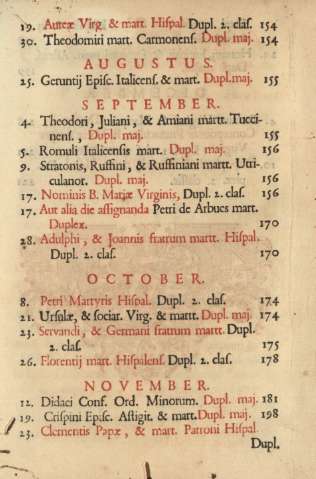 19. Aureæ Virg. & mart. Hispal. Dupl. 2. clas. 154
30. Theodomiri mart. Carmonens. Dupl. maj. 154
AUGUSTUS.
25. Geruntij Episc. Italicens. & mart. Dupl. maj. 155
SEPTEMBER.
4. Theodori, Juliani, & Amiani martt. Tucci-
nens., Dupl. maj. 155
5. Romuli Italicensis mart. Dupl. maj. 156
9. Stratonis, Ruffini, & Ruffiniani martt. Utri-
culanor. Dupl. maj. 156
17. Nominis B. Mariæ Virginis, Dupl. 2. clas. 156
17. Aut alia die assignanda Petri de Arbues mart.
Duplex. 170
28. Adulphi, & Joannis fratrum martt. Hispal.
Dupl. 2. clas. 170
OCTOBER.
8. Petri Martyris Hispal. Dupl. 2. clas. 174
21. Ursulæ, & sociar. Virg. & martt. Dupl. maj. 174
23. Servandi, & Germani fratrum martt. Dupl.
2. clas. 175
26. Florentij mart. Hispalens. Dupl. 2. clas. 178
NOVEMBER.
12. Didaci Conf. Ord. Minorum. Dupl. maj. 181
19. Crispini Episc. Astigit. & mart. Dupl. maj. 198
23. Clementis Papæ, & mart. Patroni Hispal.
Dupl.